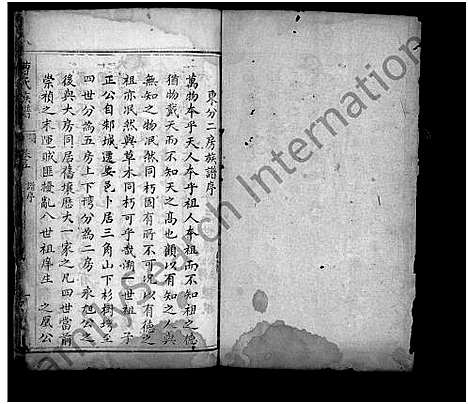 東分二房族譜序
萬物本乎天人本乎祖人本祖而不知祖之德
猶物戴天而不知天之高也顧以有知之人與
無知之物泯然同朽固有所不可况以有德之
祖亦泯然與草木同朽可乎哉溯一世祖 子
正公自邾城遷安邑卜居三角山下杉樹塆至
四世分為五房上下塆分為二房 永旭公之
後與大房同居舊壤歷大一家之凡四世當前
崇禎之末陲賊匪擾亂八世祖庠生 之鳳公
氏族譜
譜序
FamilySearch International